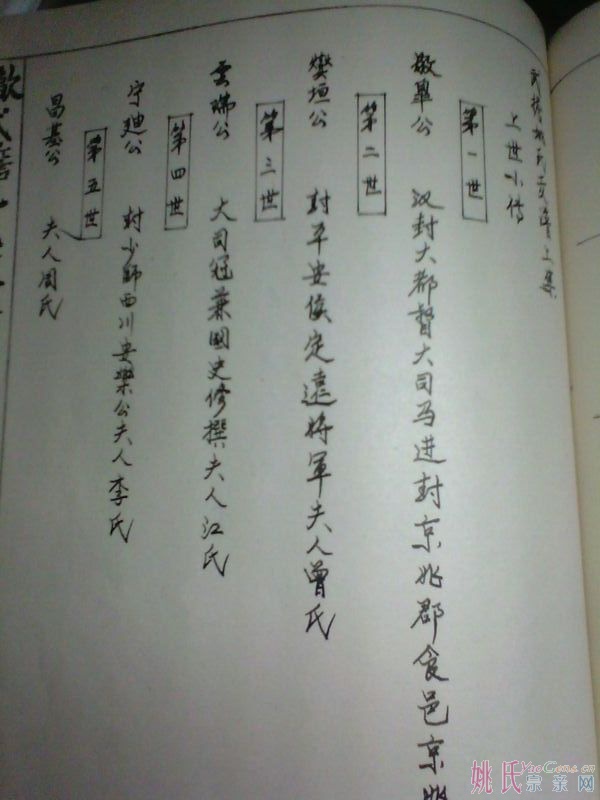 上世小传
第一世
敬羣公 汉封大都督大司马进封京兆郡食邑京兆
第二世
燮垣公 封平安侯定遠将軍夫人曾氏
第三世
雲瑞公 大司冦兼國史修撰夫人江氏
第四世
守廸公 封少師西川安樂公夫人李氏
第五世
昌基公 夫人周氏
姚氏宗亲网
YaoGens.cn